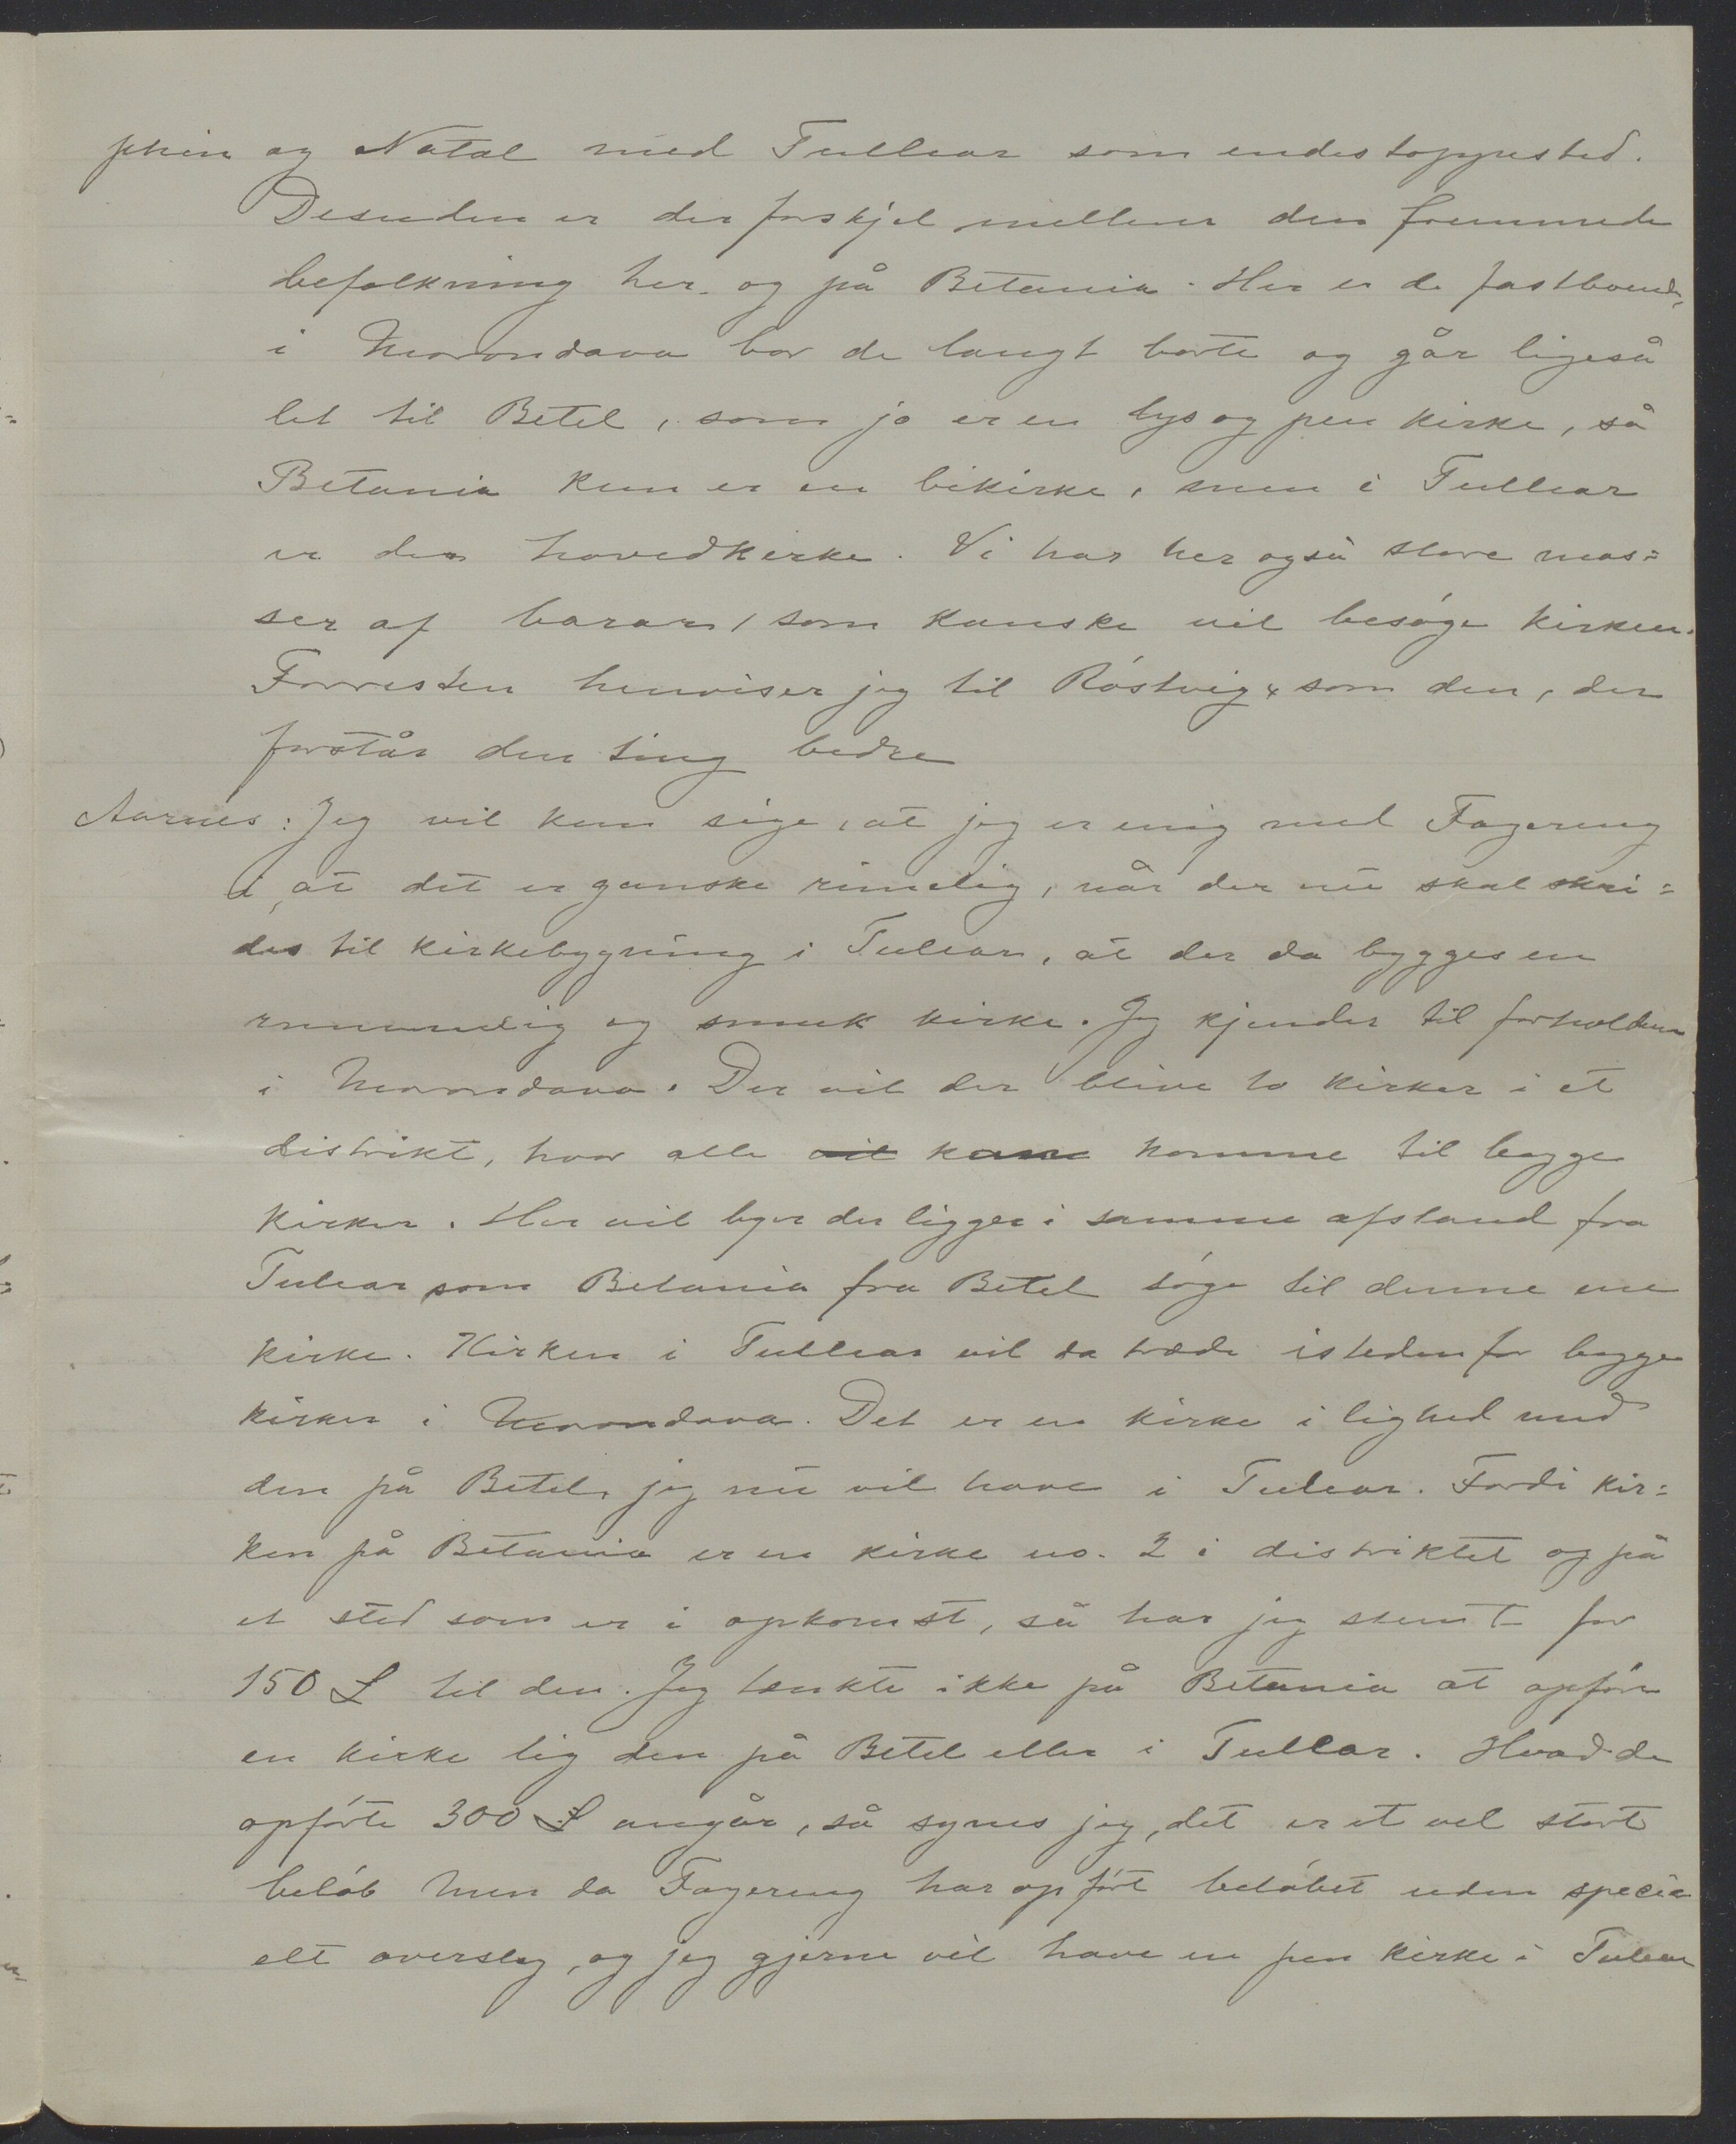 phin og Natal med Tullear som endestoppested.
Desuden er der forskjel mellem den fremmede
befolkning her og på Betania. Her er de fastboende,
i Morondava bor de langt borte og går ligeså
let til Betel, som jo er en lys og pen kirke, så
Betania kun er en bikirke, men i Tullear
er den hovedkirke. Vi har her også store mas=
ser af barar, som kanske vil besöge kirken.
Forresten henviser jeg til Röstvig, som den, der
forstår den ting bedre
Aarnes: Jeg vil kun sige, at jeg er enig med Fagereng
i, at det er ganske rimelig, når der nu skal skri=
des til kirkebygning i Tulear, at der da bygges en
rummelig og smuk kirke. Jeg kjender til forholdene
i Morondava. Der vil der blive to kirker i et
distrikt, hvor alle vil kan komme til begge
kirker. Her vil byer der ligger i samme afstand fra
Tulear som Betania fra Betel söge til denne ene
kirke. Kirken i Tullear vil da træde istedenfor begge
kirker i Morondava. Det er en kirke i lighed med
den på Betel, jeg nu vil have i Tulear. Fordi kir=
ken på Betania er en kirke no. 2 i distriktet og på
et sted som er i opkomst, så har jeg stemt for
150 £ til den. Jeg tænkte ikke på Betania at opföre
en kirke lig den på Betel eller i Tullear. Hvad de
opförte 300 £ angår, så synes jeg, det er et vel stort
belöb men da Fagereng har opfört belöbet uden speci
elt overslag, og jeg gjerne vil have en pen kirke i Tulear